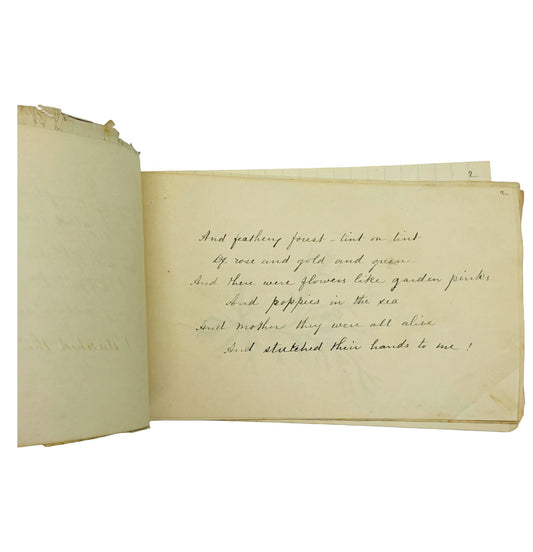 2
2
And feathery forest - tint on tint
Of rose and gold and green.
And there were flowers like garden pinks
And poppies in the sea
And mother they were all alive
And stretched their hands to me !